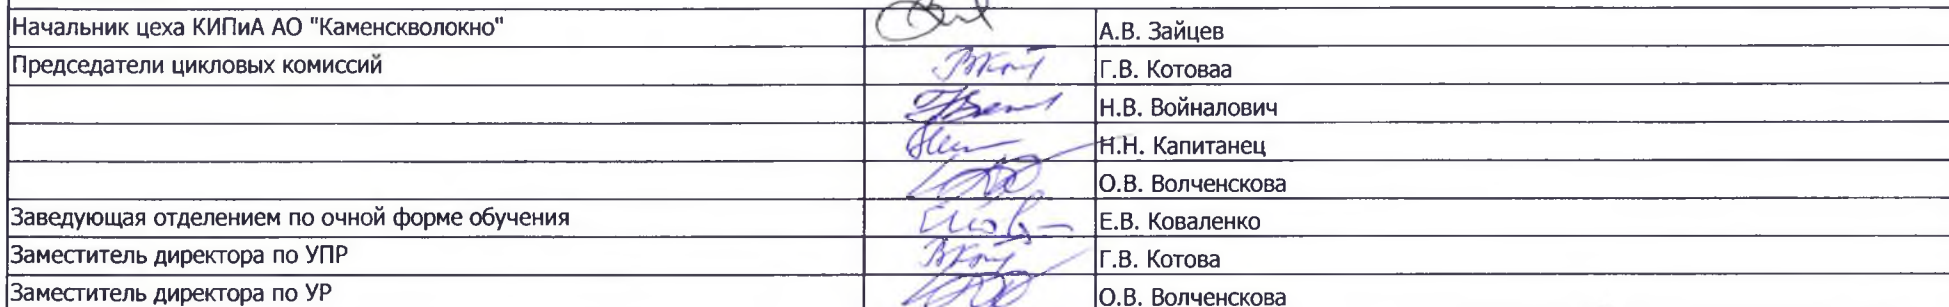 Начальник цеха КИПиА АО "Каменскволокно" А.В. Зайцев
Председатели цикловых комиссий Г.В. Котоваа
Н.В. Войналович
Н.Н. Капитанец
О.В. Волченскова
Заведующая отделением по очной форме обучения Е.В. Коваленко
Заместитель директора по УПР Г.В. Котова
Заместитель директора по УР О.В. Волченскова